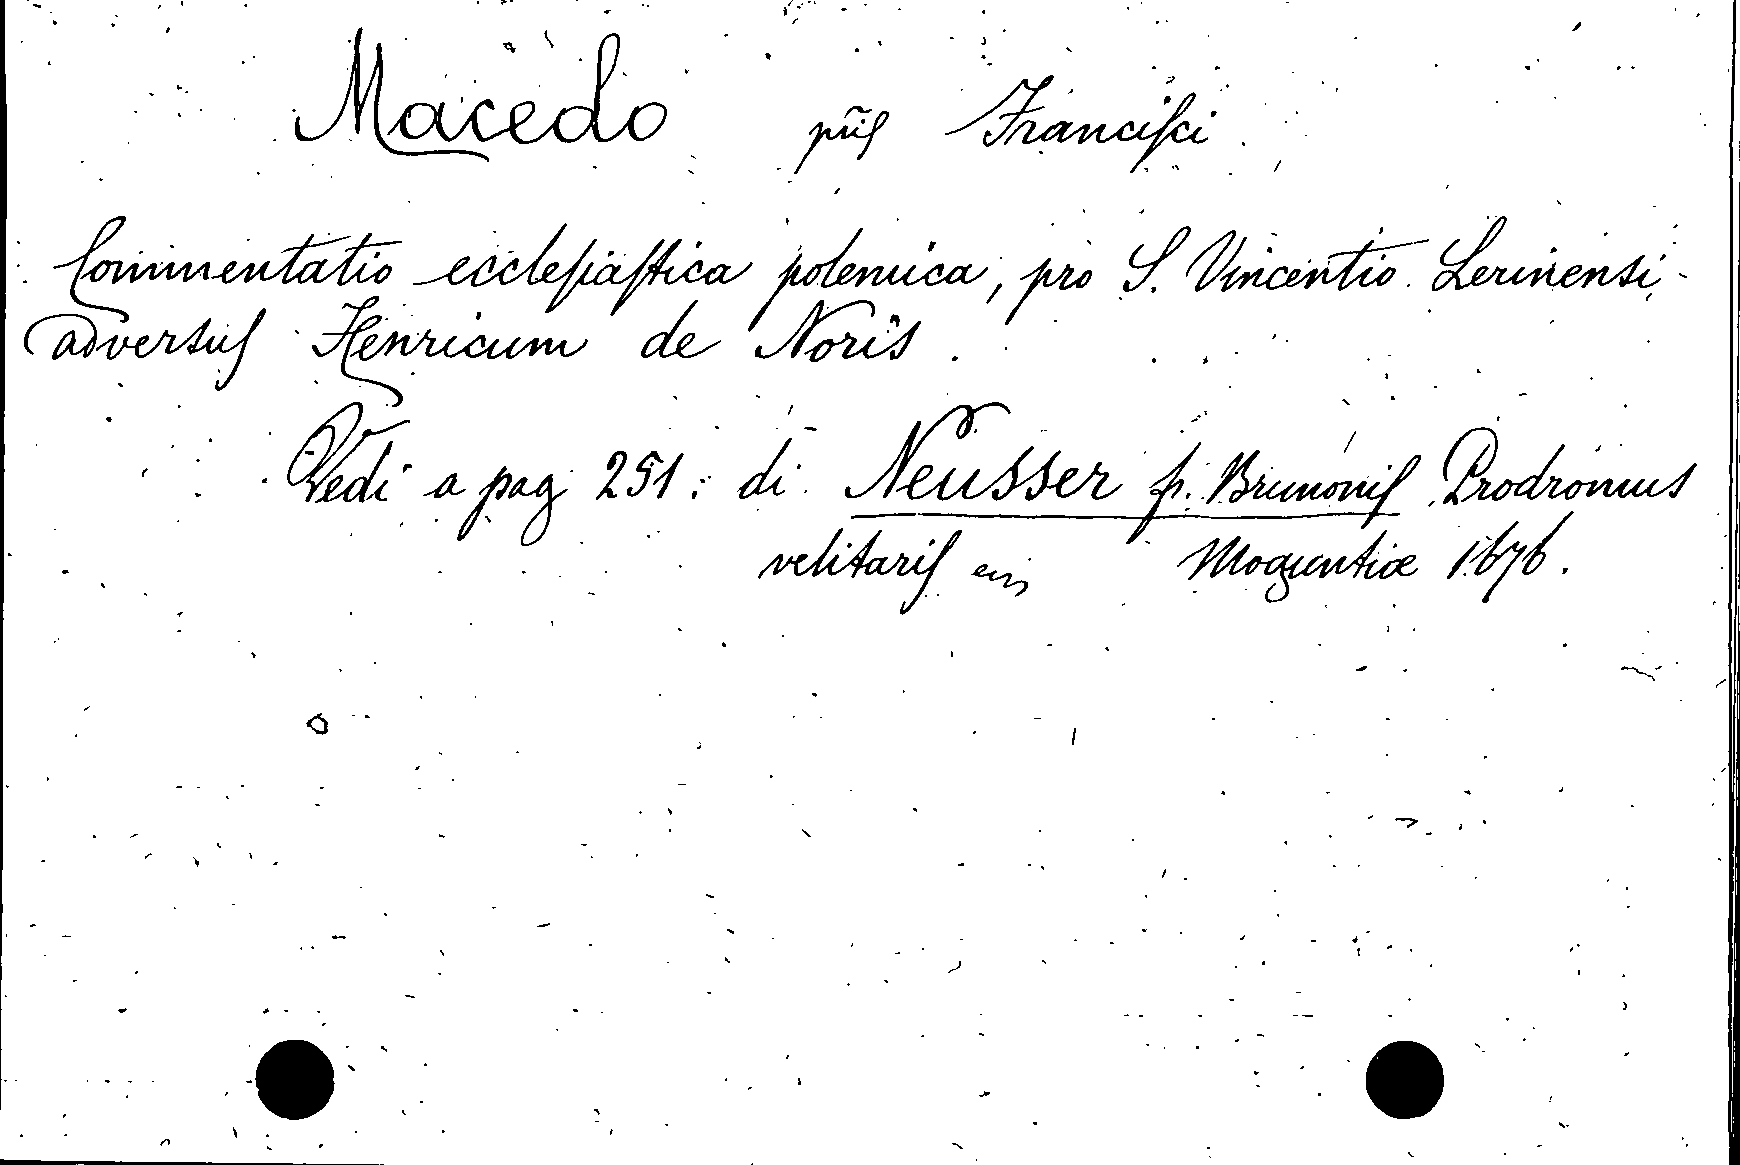 Macedo Franciſci
Commentatio eccleſiaſtica polemica, pro S. Vincentio Lerinensi,
adversuſ Henricum de Noris.
Vedi a pag 251. di Neusser fr. Brunoniſ Prodromus
velitariſ Moguntiæ 1676.